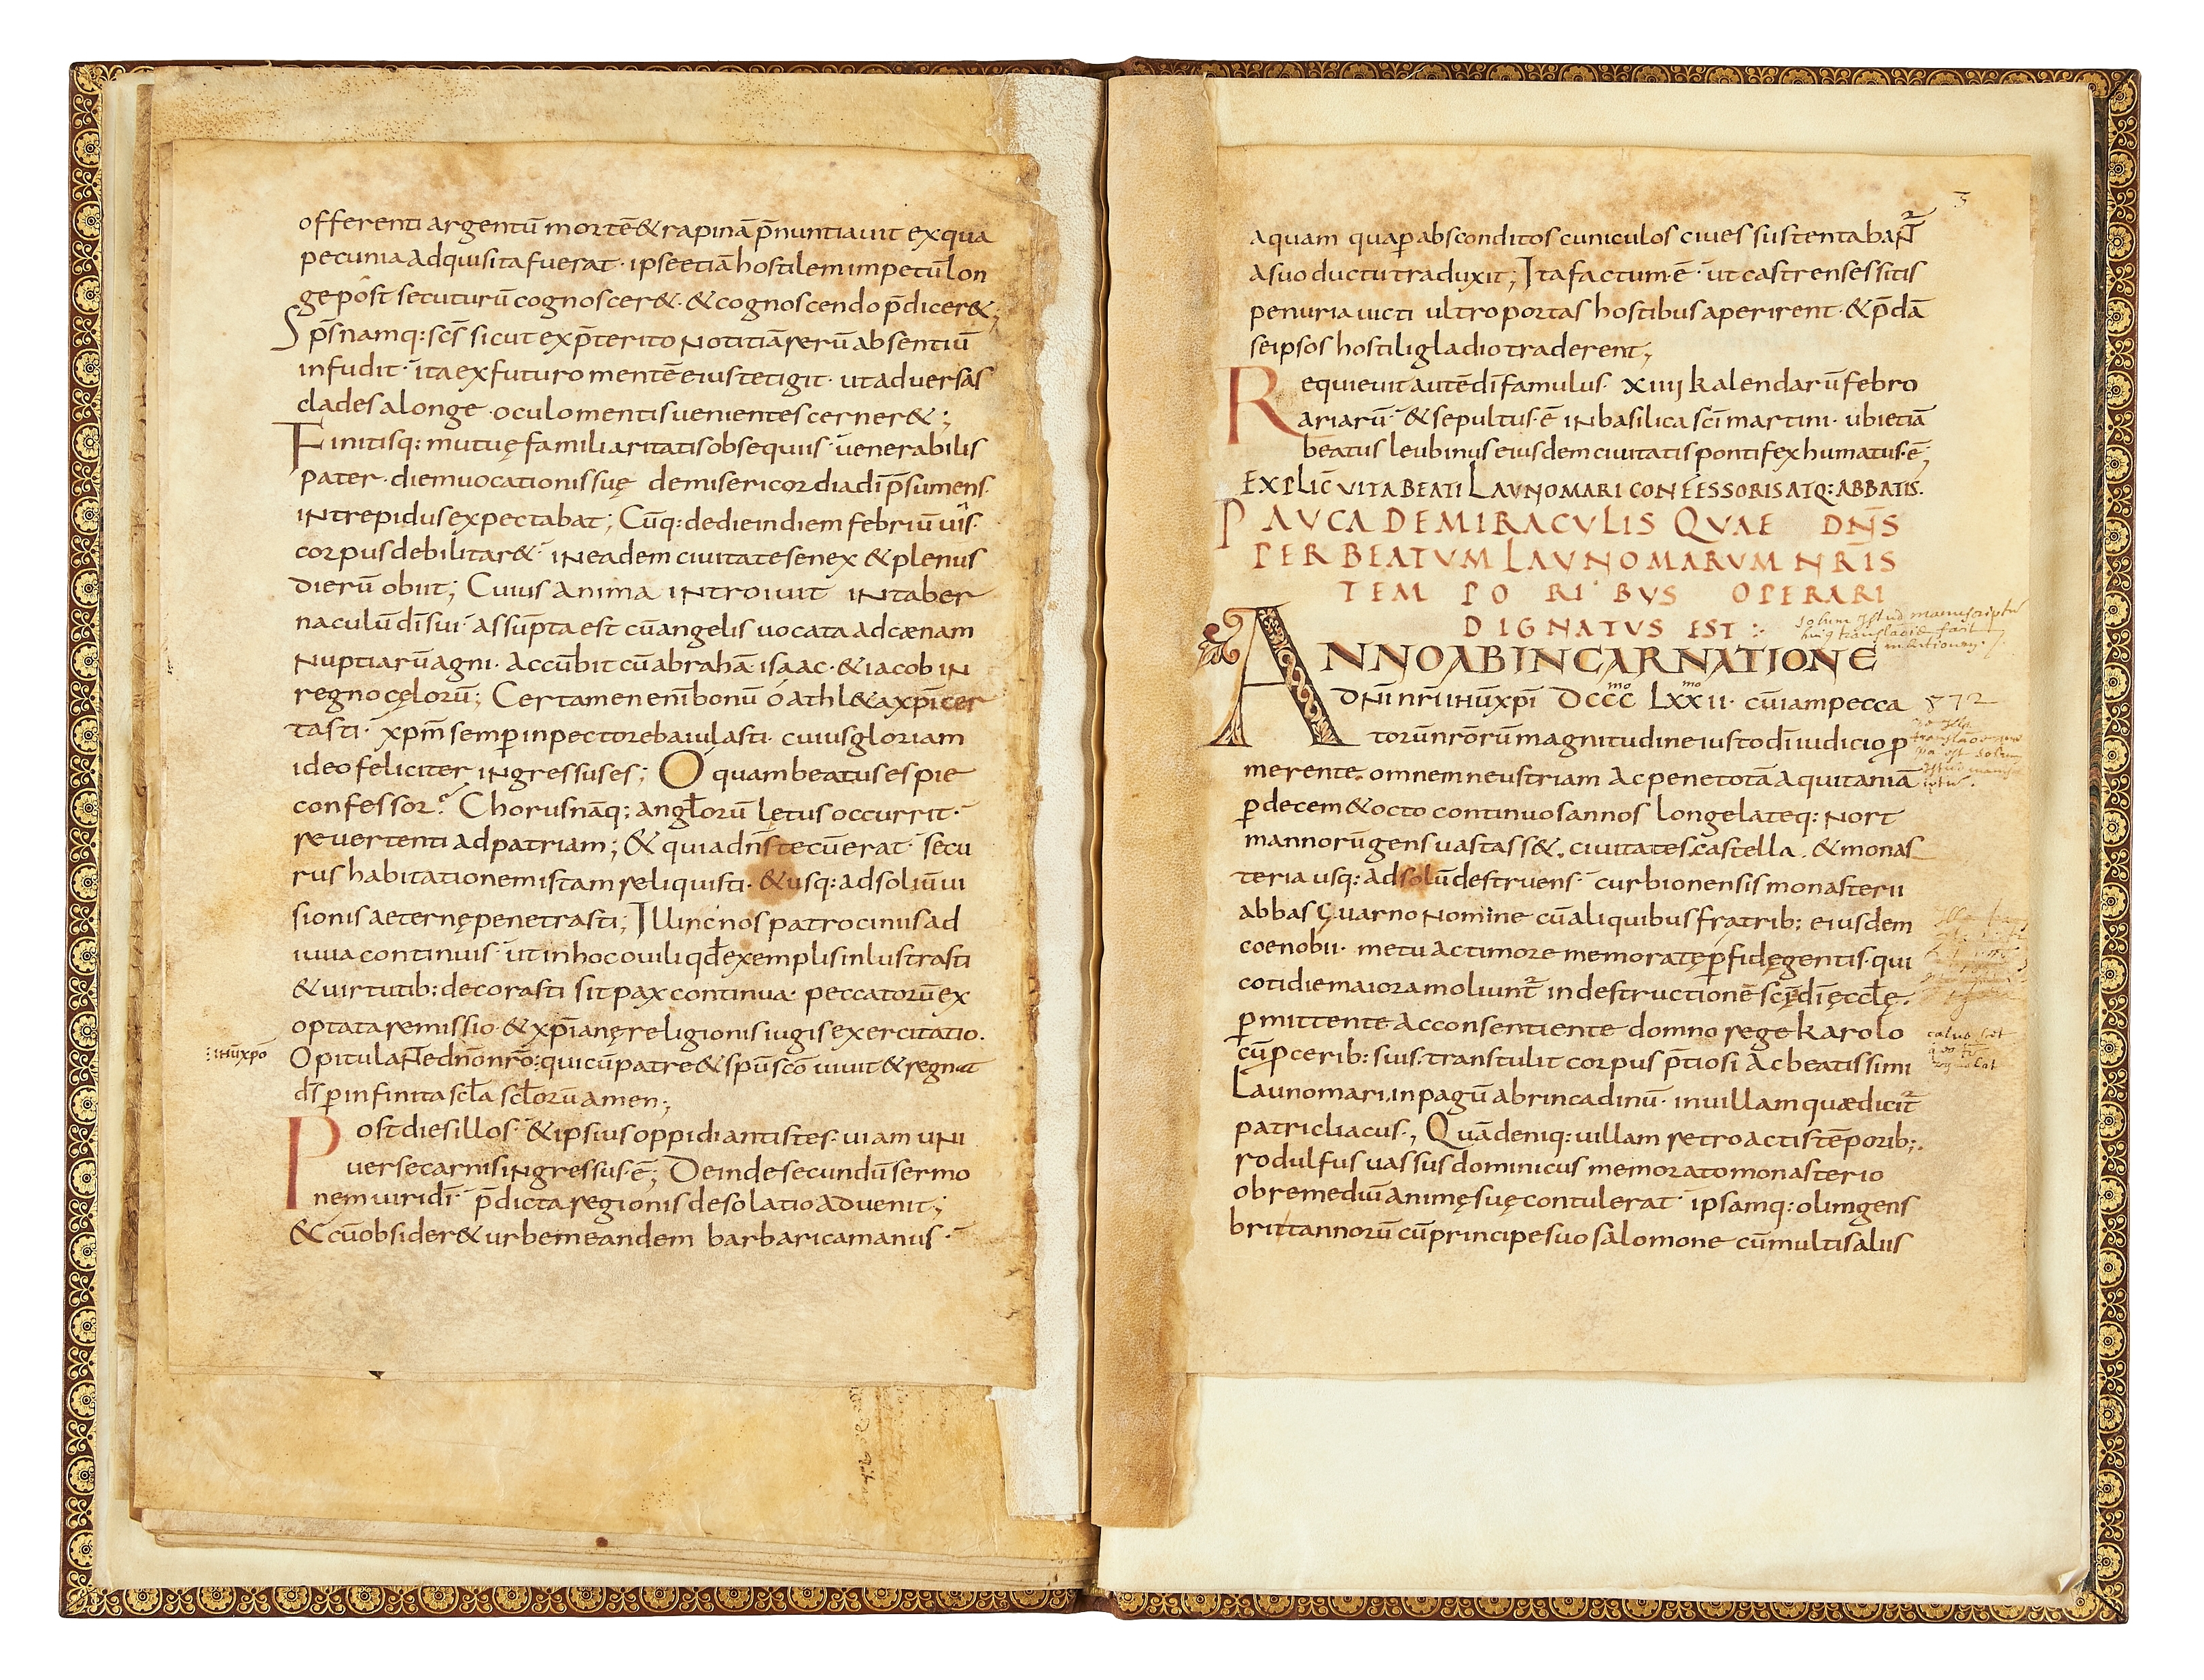 offerenti argentū mortē & rapinā p̄nuntiauit ex qua
pecunia adquisita fuerat· ipse etiā hostilem impetū lon
ge post secuturū cognoscer&· & cognoscendo p̄dicer&;
Sp̄s namq: sc̄s sicut ex p̄terito notitiā rerū absentiū
infudit· ita ex futuro mentē eius tetigit· ut aduersas
clades a longe· oculo mentis uenientes cerner&;
Finitisq: mutuę familiaritatis obsequiis· uenerabilis
pater· diem uocationis suę de misericordia dī p̄sumens·
intrepidus expectabat; Cūq: de die in diem febriū uiīs·
corpus debilitar&· in eadem ciuitate senex & plenus
dierū obiit; Cuius anima introiuit in taber
naculū dī sui· assūpta est cū angelis uocata ad cænam
nuptiarū agni· accūbit cū abrahā· isaac· & iacob in
regno cęlorū; Certamen enī bonū ó athl&a xp̄i cer
tasti· xp̄m semp̄ in pectore baiulasti· cuius gloriam
ideo feliciter ingressus es; O quam beatus es pie
confessor? Chorus nāq; angl̄orū lętus occurrit·
reuertenti ad patriam; & quia dn̄s tecū erat· secu
rus habitationem istam reliquisti· & usq: ad soliū ui
sionis aeternę penetrasti; Illinc nos patrociniis ad
iuua continuis· ut in hoc ouili qd̄ exemplis inlustrasti
& uirtutib: decorasti sit pax continua· peccatorū ex
optata remissio· & xp̄ianę religionis iugis exercitatio·
ihūxpō
Opitulante dn̄o nr̄o: qui cū patre & sp̄u sc̄o uiuit & regnat
ds̄ p̄ infinita scl̄a scl̄orū amen;
Post dies illos· & ipsius oppidi antistes· uiam uni
uerse carnis ingressus·ē; Deinde secundū sermo
nem uiri dī· p̄dicta regionis desolatio aduenit;
& cū obsider& urbem eandem barbarica manus·
3
aquam qua p̄ absconditos cuniculos ciues sustentabant̄
a suo ductu traduxit; Ita factum·ē· ut castrenses sitis
penuria uicti ultro portas hostibus aperirent· & p̄dā
se ipsos hostili gladio traderent;
Requieuit autē dī famulus· xiiij kalendarū febro
ariarū· & sepultus·ē in basilica sc̄i martini· ubi etiā
beatus leubinus eiusdem ciuitatis pontifex humatus·ē;
EXPLIC̄ VITA BEATI LAVNOMARI CONFESSORIS ATQ: ABBATIS·
PAVCA DE MIRACVLIS QVAE DN̄S
PER BEATVM LAVNOMARVM NR̄IS
TEMPORIBVS OPERARI
DIGNATVS EST:·
solum Istud manuscriptū
ANNO AB INCARNATIONE
dn̄i nr̄i ihū xp̄i Dcccᵐᵒ Lxxᵐᵒii· cū iam pecca
872
torū nr̄orū magnitudine iusto dī iudicio p̄
merente· omnem neustriam ac pene totā aquitaniā
p̄ decem & octo continuos annos longe lateq: nort
mannorū gens uastass&. ciuitates. castella. & monas
teria usq: ad solū destruens· curbionensis monasterii
abbas Guarno nomine cū aliquibus fratrib: eiusdem
coenobii· metu ac timore memoratę p̄fidę gentis· qui
cotidie maiora moliunt̄ in destructionē sc̄ę dī ęccl̄ę·
p̄mittente ac consentiente domno rege karolo
cū p̄cerib: suis· transtulit corpus p̄tiosi ac beatissimi
Launomari, in pagū abrincadinū· in uillam quæ dicit̄
patricliacus·, Quā deniq: uillam retroactis tēporib;·
rodulfus uassus dominicus memorato monasterio
ob remediū animę suę contulerat· ipsamq: olim gens
brittannorū cū principe suo salomone cū multis aliis